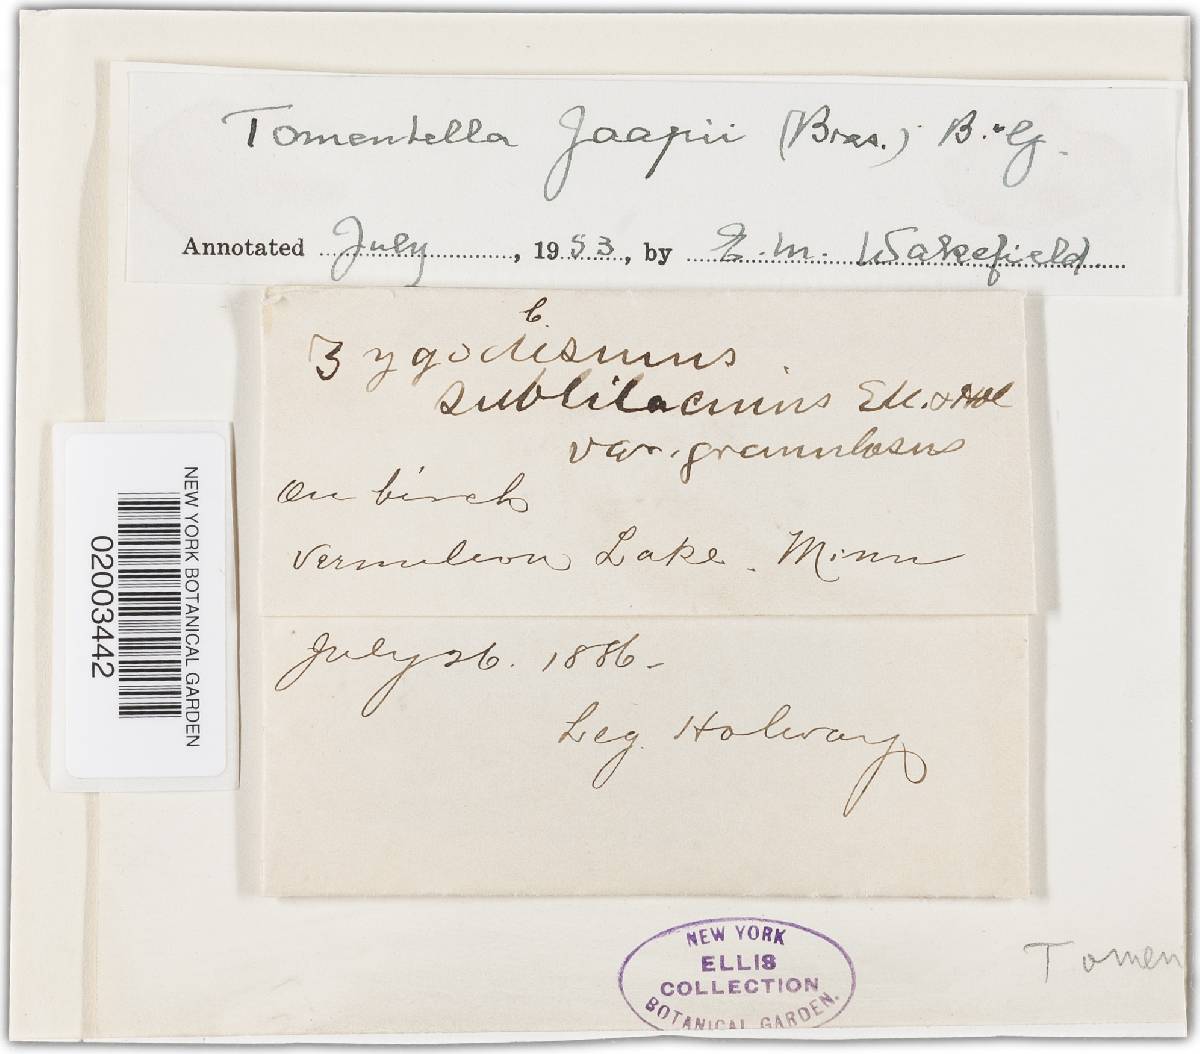 Tomentella Jaapii (Bres.) B. & G.
Annotated July, 1953, by E. M. Wakefield
6.
Zygodesmus
sublilacinus Ell. & Hol
var. granulosus
On birch
Vermilion Lake. Minn
July 26. 1886-
Leg. Holway
NEW YORK BOTANICAL GARDEN
02003442
NEW YORK
ELLIS
COLLECTION
BOTANICAL GARDEN.
Tomen